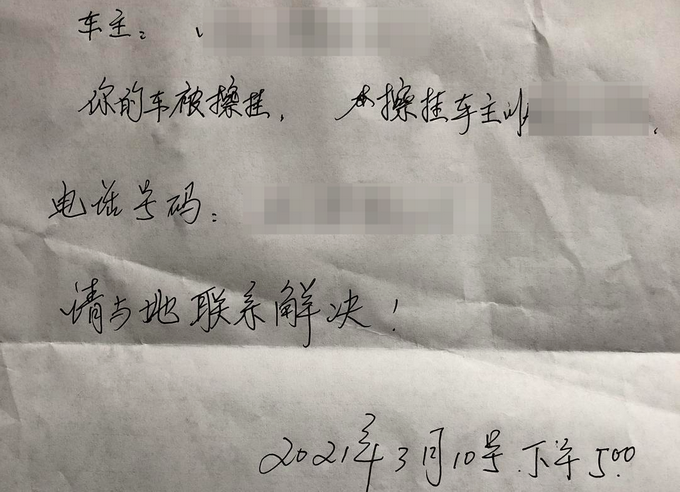 车主：
你的车被擦挂， 擦挂车主叫
电话号码：
请与她联系解决！
2021年3月10号下午5:00